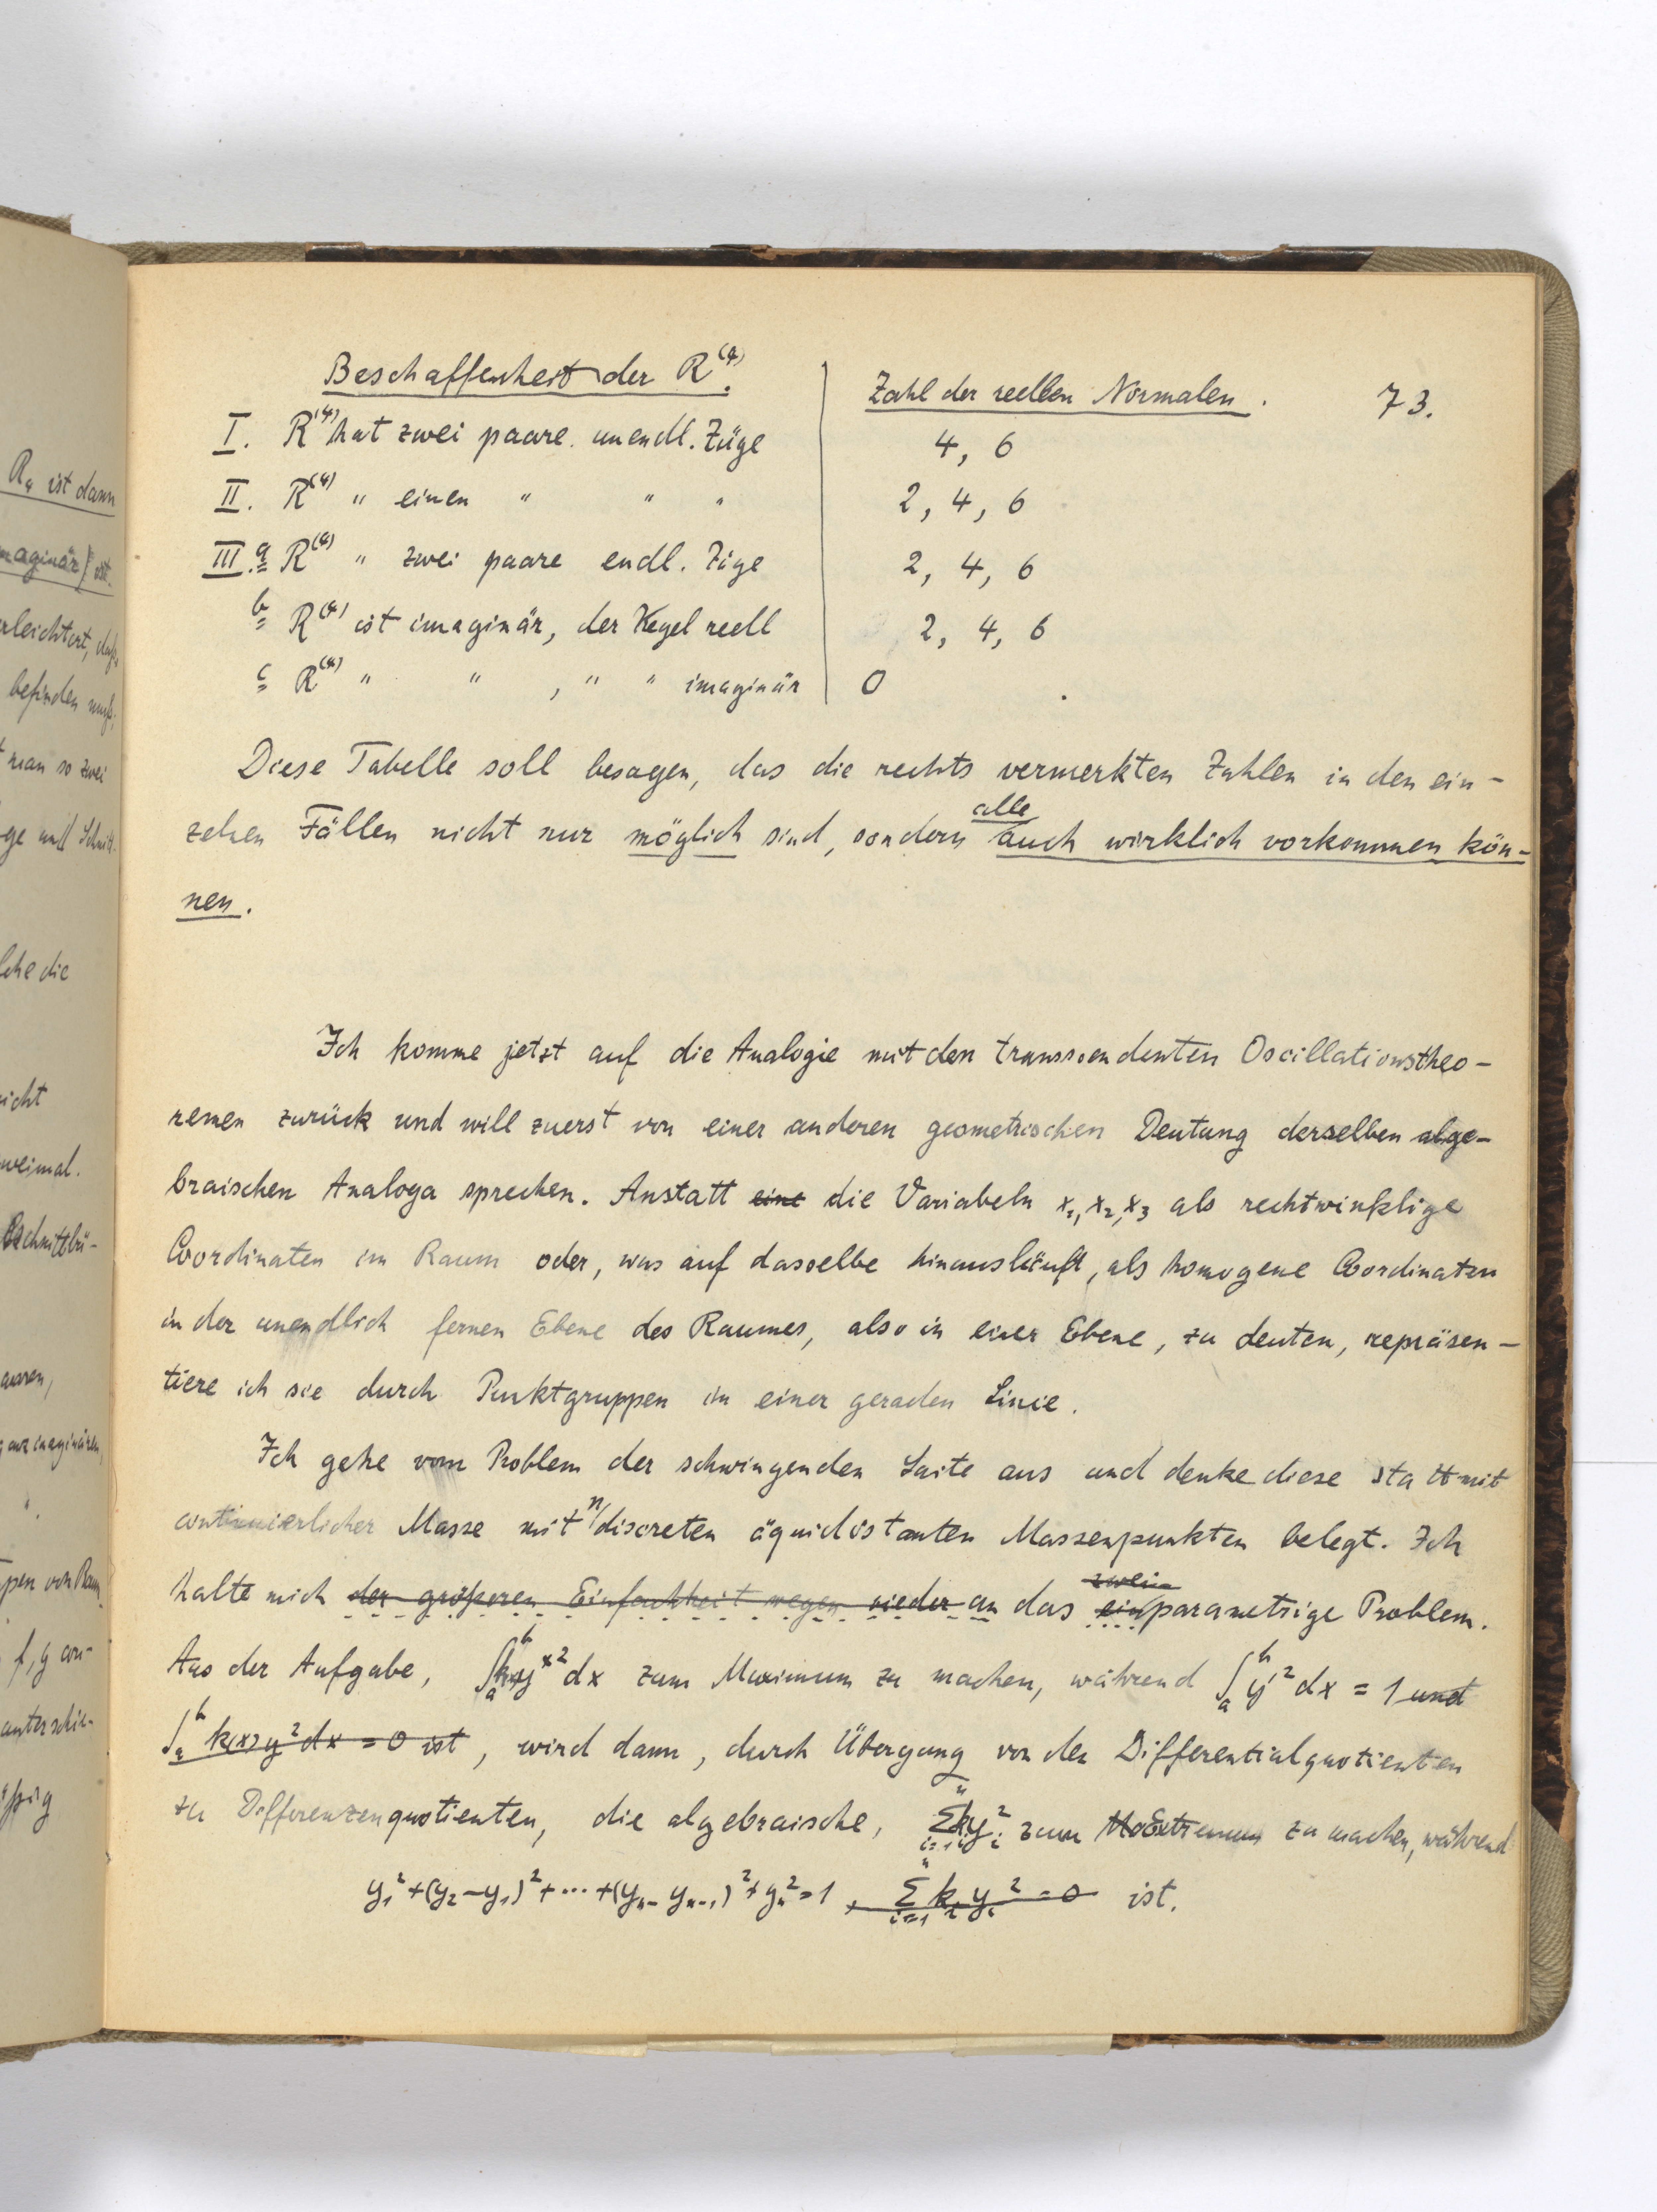 73.
Beschaffenheit der R⁽⁴⁾. Zahl der reellen Normalen.
I. R⁽⁴⁾ hat zwei paare unendl. Züge 4, 6
II. R⁽⁴⁾ " einen " " " 2, 4, 6
III. a R⁽⁴⁾ " zwei paare endl. Züge 2, 4, 6
b R⁽⁴⁾ ist imaginär, der Kegel reell 2, 4, 6
c R⁽⁴⁾ " " , " " imaginär 0
Diese Tabelle soll besagen, das die rechts vermerkten Zahlen in den ein-
zelnen Fällen nicht nur möglich sind, sondern alle auch wirklich vorkommen kön-
nen.
Ich komme jetzt auf die Analogie mit den transscendenten Oscillationstheo-
remen zurück und will zuerst von einer anderen geometrischen Deutung derselben alge-
braischen Analoga sprechen. Anstatt eine die Variabeln x₁, x₂, x₃ als rechtwinklige
Coordinaten im Raum oder, was auf dasselbe hinausläuft, als homogene Coordinaten
in der unendlich fernen Ebene des Raumes, also in einer Ebene, zu deuten, repräsen-
tiere ich sie durch Punktgruppen in einer geraden Linie.
Ich gehe vom Problem der schwingenden Saite aus und denke diese statt mit
continuierlicher Masse mit n discreten äquidistanten Massenpunkten belegt. Ich
halte mich der größeren Einfachheit wegen wieder an das zwei ein parametrige Problem.
Aus der Aufgabe, ∫ₐᵇ y² dx zum Maximum zu machen, während ∫ₐᵇ y'² dx = 1 und
∫ₐᵇ k(x) y² dx = 0 ist, wird dann, durch Übergang von den Differentialquotienten
zu Differenzenquotienten, die algebraische, Σⁿᵢ₌₁ kᵢyᵢ² zum Extremum zu machen, während
y₁² + (y₂ - y₁)² + ... + (yₙ - yₙ₋₁)² + yₙ² = 1, Σⁿᵢ₌₁ kᵢ yᵢ² = 0 ist.
R₄ ist dann
maginär) ist.
rleichtert, daß
befinden muß;
man so zwei
che die
icht
weimal.
f, g